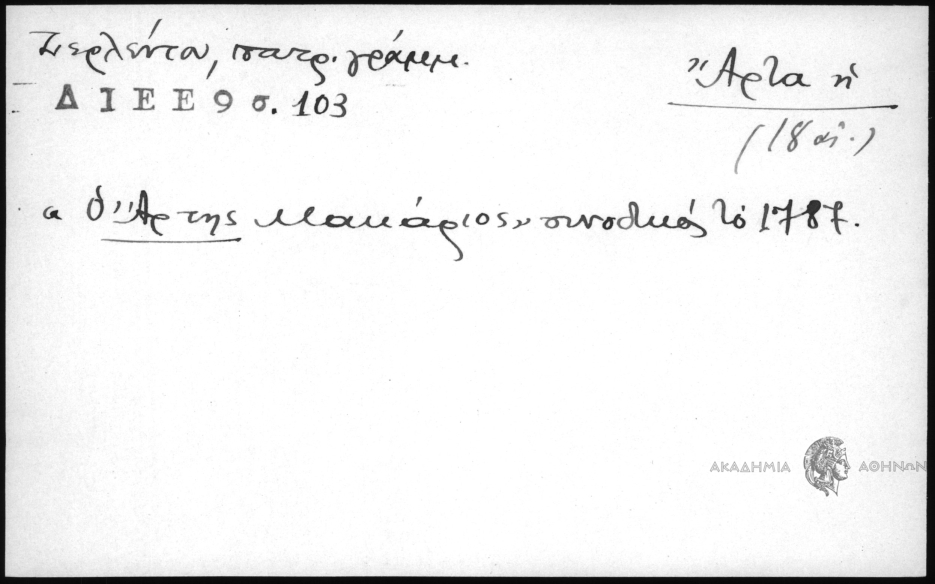 Ζερλέντου, πατρ. γράμμ.
Δ Ι Ε Ε 9 σ. 103
Ἄρτα ἡ
(18 αἰ.)
« ὁ Ἄρτης Μακάριος» συνοδικός τὸ 1787.
ΑΚΑΔΗΜΙΑ ΑΘΗΝΩΝ